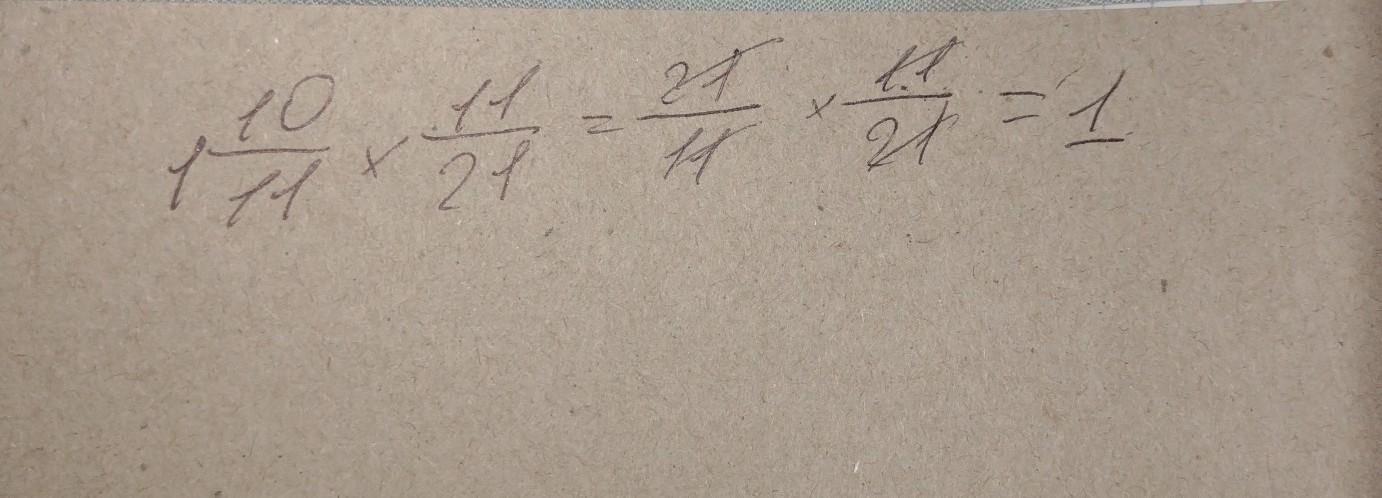 1 10/11 × 11/21 = 21/11 × 11/21 = 1